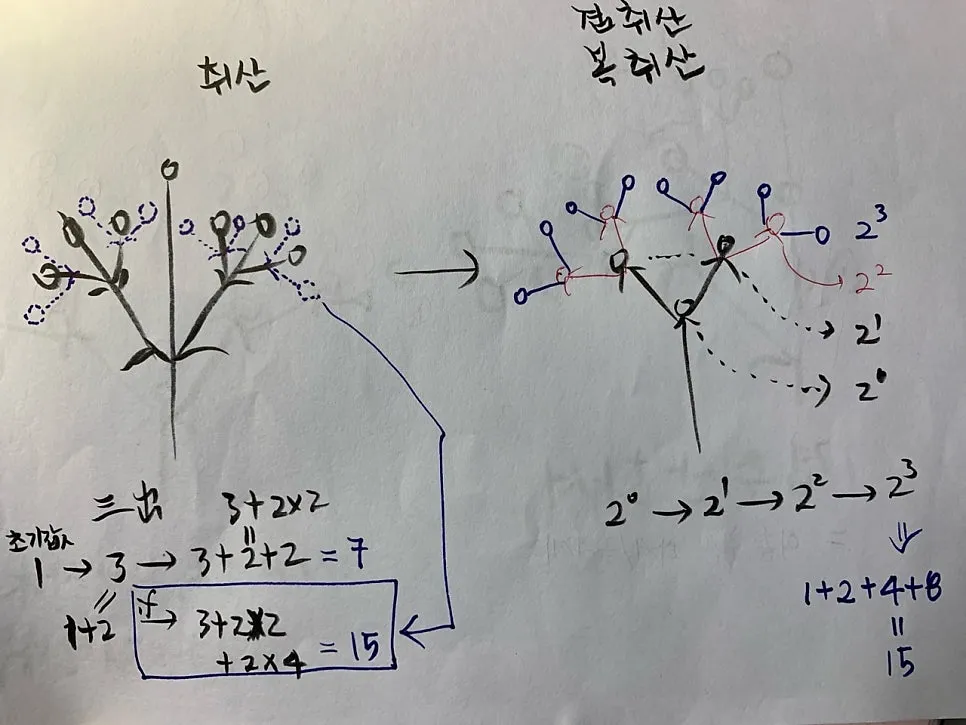 취산
겹취산
복취산
2³
2²
2¹
2⁰
三出 3+2×2
초기값
1 → 3 → 3+2+2 = 7
1+2
if → 3+2×2
+2×4 = 15
2⁰ → 2¹ → 2² → 2³
1+2+4+8
=
15